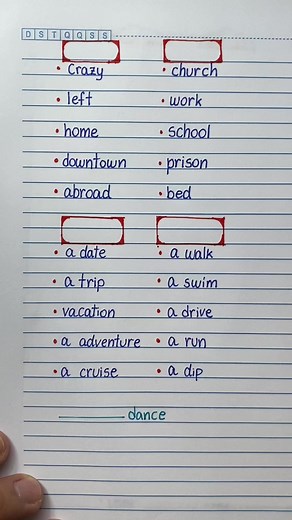 D S T Q Q S S
• crazy
• left
• home
• downtown
• abroad
• church
• work
• school
• prison
• bed
• a date
• a trip
• vacation
• a adventure
• a cruise
• a walk
• a swim
• a drive
• a run
• a dip
________ dance